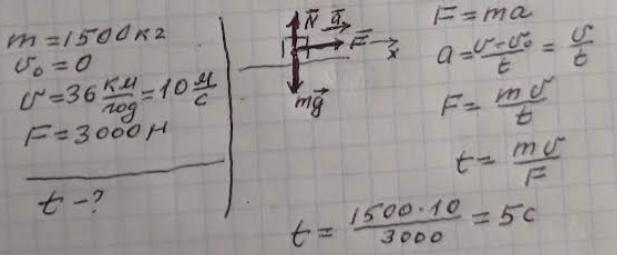 m = 1500 кг
v₀ = 0
v = 36 км/год = 10 м/с
F = 3000 Н
t - ?
N⃗ a⃗
F⃗ x
mg⃗
F = ma
a = (v - v₀)/t = v/t
F = mv/t
t = mv/F
t = (1500 · 10)/3000 = 5 с